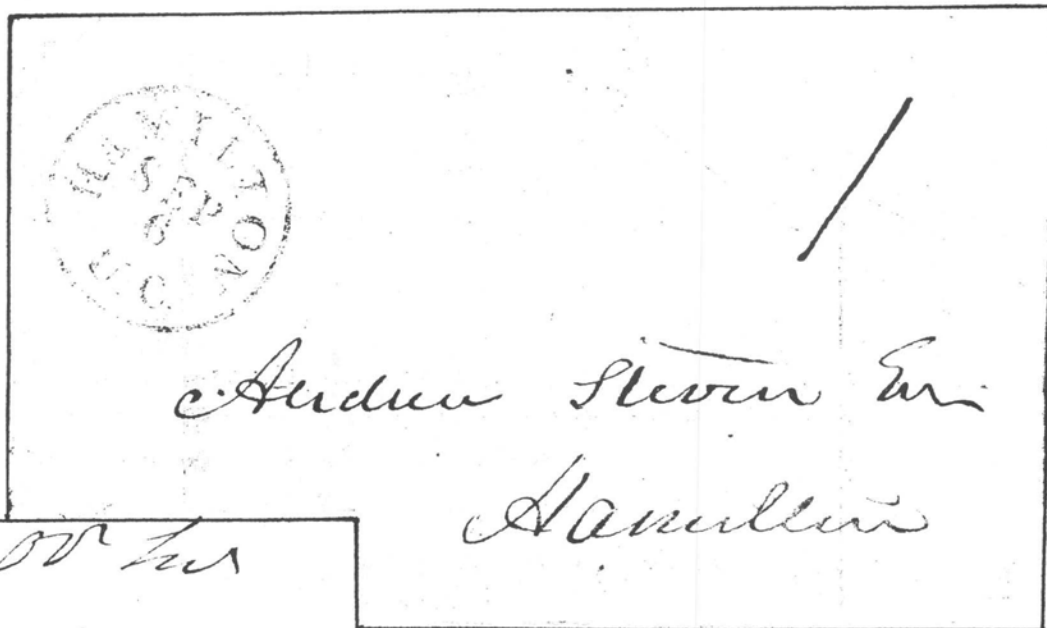 HAMILTON
SEP
6
U.C.
/
Andrew Steven Esq.
Hamilton